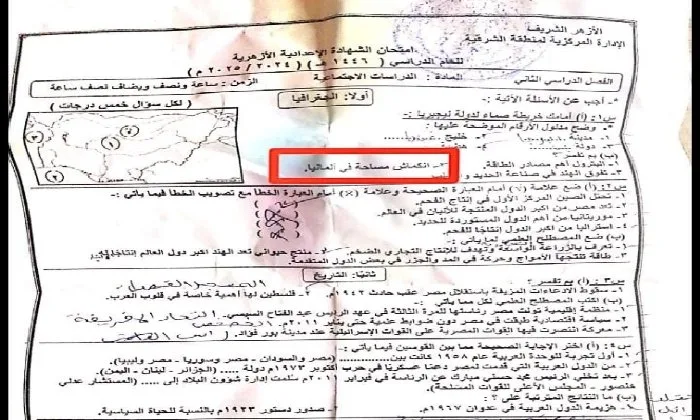 الأزهر الشريف
الإدارة المركزية لمنطقة الشرقية
امتحان الشهادة الإعدادية الأزهرية
للعام الدراسي (١٤٤٦ هـ) (٢٠٢٤ / ٢٠٢٥ م)
الفصل الدراسي الثاني المادة: الدراسات الاجتماعية الزمن: ساعة ونصف ويضاف نصف ساعة
أولا: الجغرافيا (لكل سؤال خمس درجات)
*- أجب عن الأسئلة الآتية:-
س١: (أ) أمامك خريطة صماء لدولة نيجيريا:-
* وضح مدلول الأرقام الموضحة عليها:
١- مدينة ٢- خليج
٣- دولة ٤- هضبة
(ب) بم تفسر؟
١- البترول أهم مصادر الطاقة. ٢- انكماش مساحة في المانيا.
٣- تفوق الهند في صناعة الحديد و
س٢: (أ) ضع علامة (√) أمام العبارة الصحيحة وعلامة (×) أمام العبارة الخطأ مع تصويب الخطأ فيما يأتي:-
١- تحتل الصين المركز الأول في إنتاج الفحم.
٢- تعد مصر من أكبر الدول المنتجة للألبان في العالم.
٣- موريتانيا من أهم الدول المستوردة للحديد.
٤- استراليا من أكبر الدول إنتاجا للفحم.
(ب) ضع المصطلح العلمي لما يأتي:-
١- تعرف بالزراعة الواسعة وتهدف للإنتاج التجاري الضخم. ٢- منتج حيواني تعد الهند أكبر دول العالم إنتاجا له.
٣- طاقة تنتجها أمواج وحركة في المد والجزر في بعض الدول المتقدمة.
ثانيا: التاريخ
س٣: (أ) بم تفسر؟
١- سقوط الادعاءات المزيفة باستقلال مصر عقب حادث ١٩٤٢م. ٢- فلسطين لها أهمية خاصة في قلوب العرب.
(ب) اكتب المصطلح العلمي لكل مما يأتي:-
١- منظمة إقليمية تولت مصر رئاستها للمرة الثالثة في عهد الرئيس عبد الفتاح السيسي.
٢- سياسة اقتصادية طبقت في مصر دون ضوابط علمية حتى يناير ٢٠١١م.
٣- معركة انتصرت فيها القوات المصرية على القوات الإسرائيلية عند مدينة بور فؤاد.
س٤: (أ) اختر الإجابة الصحيحة مما بين القوسين فيما يأتي:-
١- أول تجربة للوحدة العربية عام ١٩٥٨ كانت بين (مصر والسودان - مصر وسوريا - مصر وليبيا).
٢- من الدول العربية التي قدمت لمصر دعما عسكريا في حرب أكتوبر ١٩٧٣م دولة (الجزائر - لبنان - اليمن).
٣- بعد تخلي الرئيس محمد حسني مبارك عن الرئاسة في فبراير ٢٠١١م سلمت إدارة شؤون البلاد إلى (المستشار عدلي
منصور - المجلس الأعلى للقوات المسلحة).
(ب) ما النتائج المترتبة على؟
١- هزيمة الدول العربية في عدوان ١٩٦٧م. ٢- صدور دستور ١٩٢٣م بالنسبة للحياة السياسية.